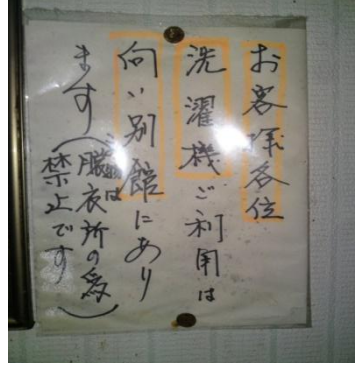 お客様各位
洗濯機ご利用は
向い別館にあり
ます(脱衣所の為
禁止です)